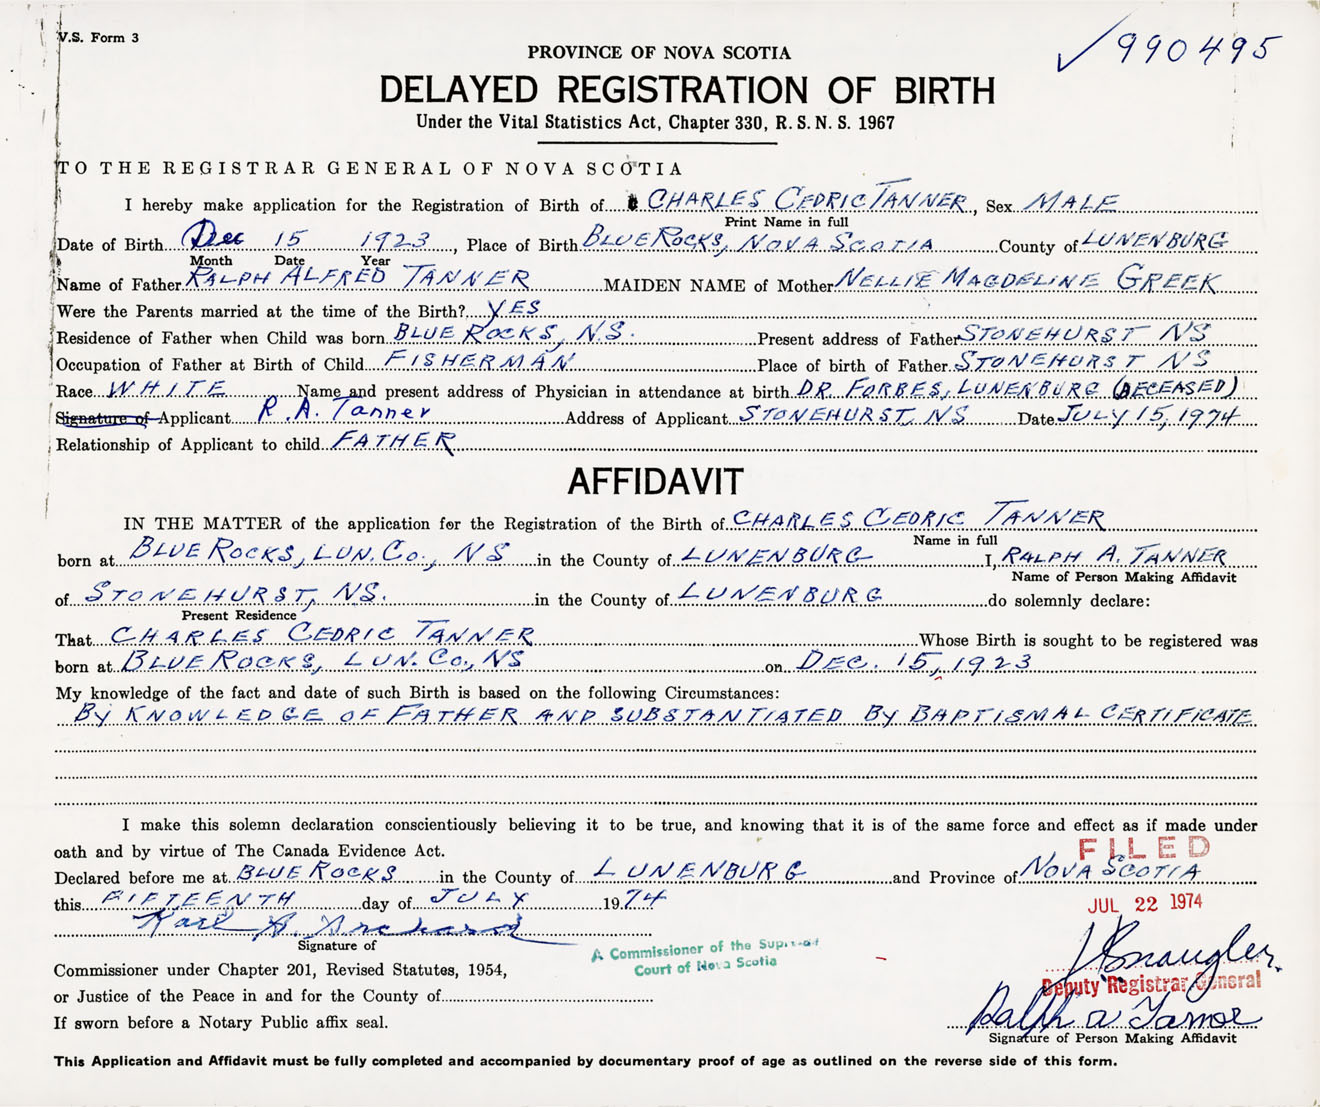 V.S. Form 3
✓990495
PROVINCE OF NOVA SCOTIA
DELAYED REGISTRATION OF BIRTH
Under the Vital Statistics Act, Chapter 330, R. S. N. S. 1967
TO THE REGISTRAR GENERAL OF NOVA SCOTIA
I hereby make application for the Registration of Birth of CHARLES CEDRIC TANNER, Sex MALE
Print Name in full
Date of Birth Dec 15 1923, Place of Birth BLUE ROCKS, NOVA SCOTIA County of LUNENBURG
Month Date Year
Name of Father RALPH ALFRED TANNER MAIDEN NAME of Mother NELLIE MAGDELINE GREEK
Were the Parents married at the time of the Birth? YES
Residence of Father when Child was born BLUE ROCKS, N.S. Present address of Father STONEHURST NS
Occupation of Father at Birth of Child FISHERMAN Place of birth of Father STONEHURST NS
Race WHITE Name and present address of Physician in attendance at birth DR. FORBES, LUNENBURG (DECEASED)
Signature of Applicant R.A. Tanner Address of Applicant STONEHURST, NS Date JULY 15, 1974
Relationship of Applicant to child FATHER
AFFIDAVIT
IN THE MATTER of the application for the Registration of the Birth of CHARLES CEDRIC TANNER
Name in full
born at BLUE ROCKS, LUN. CO., NS in the County of LUNENBURG I, RALPH A. TANNER
Name of Person Making Affidavit
of STONEHURST, N.S. in the County of LUNENBURG do solemnly declare:
Present Residence
That CHARLES CEDRIC TANNER Whose Birth is sought to be registered was
born at BLUE ROCKS, LUN. CO., NS on DEC. 15, 1923
My knowledge of the fact and date of such Birth is based on the following Circumstances:
BY KNOWLEDGE OF FATHER AND SUBSTANTIATED BY BAPTISMAL CERTIFICATE
I make this solemn declaration conscientiously believing it to be true, and knowing that it is of the same force and effect as if made under
oath and by virtue of The Canada Evidence Act.
FILED
Declared before me at BLUE ROCKS in the County of LUNENBURG and Province of NOVA SCOTIA
this FIFTEENTH day of JULY 1974
JUL 22 1974
Karl
Signature of
A Commissioner of the Supreme
Court of Nova Scotia
Commissioner under Chapter 201, Revised Statutes, 1954,
Deputy Registrar General
or Justice of the Peace in and for the County of
If sworn before a Notary Public affix seal.
Ralph A Tanner
Signature of Person Making Affidavit
This Application and Affidavit must be fully completed and accompanied by documentary proof of age as outlined on the reverse side of this form.